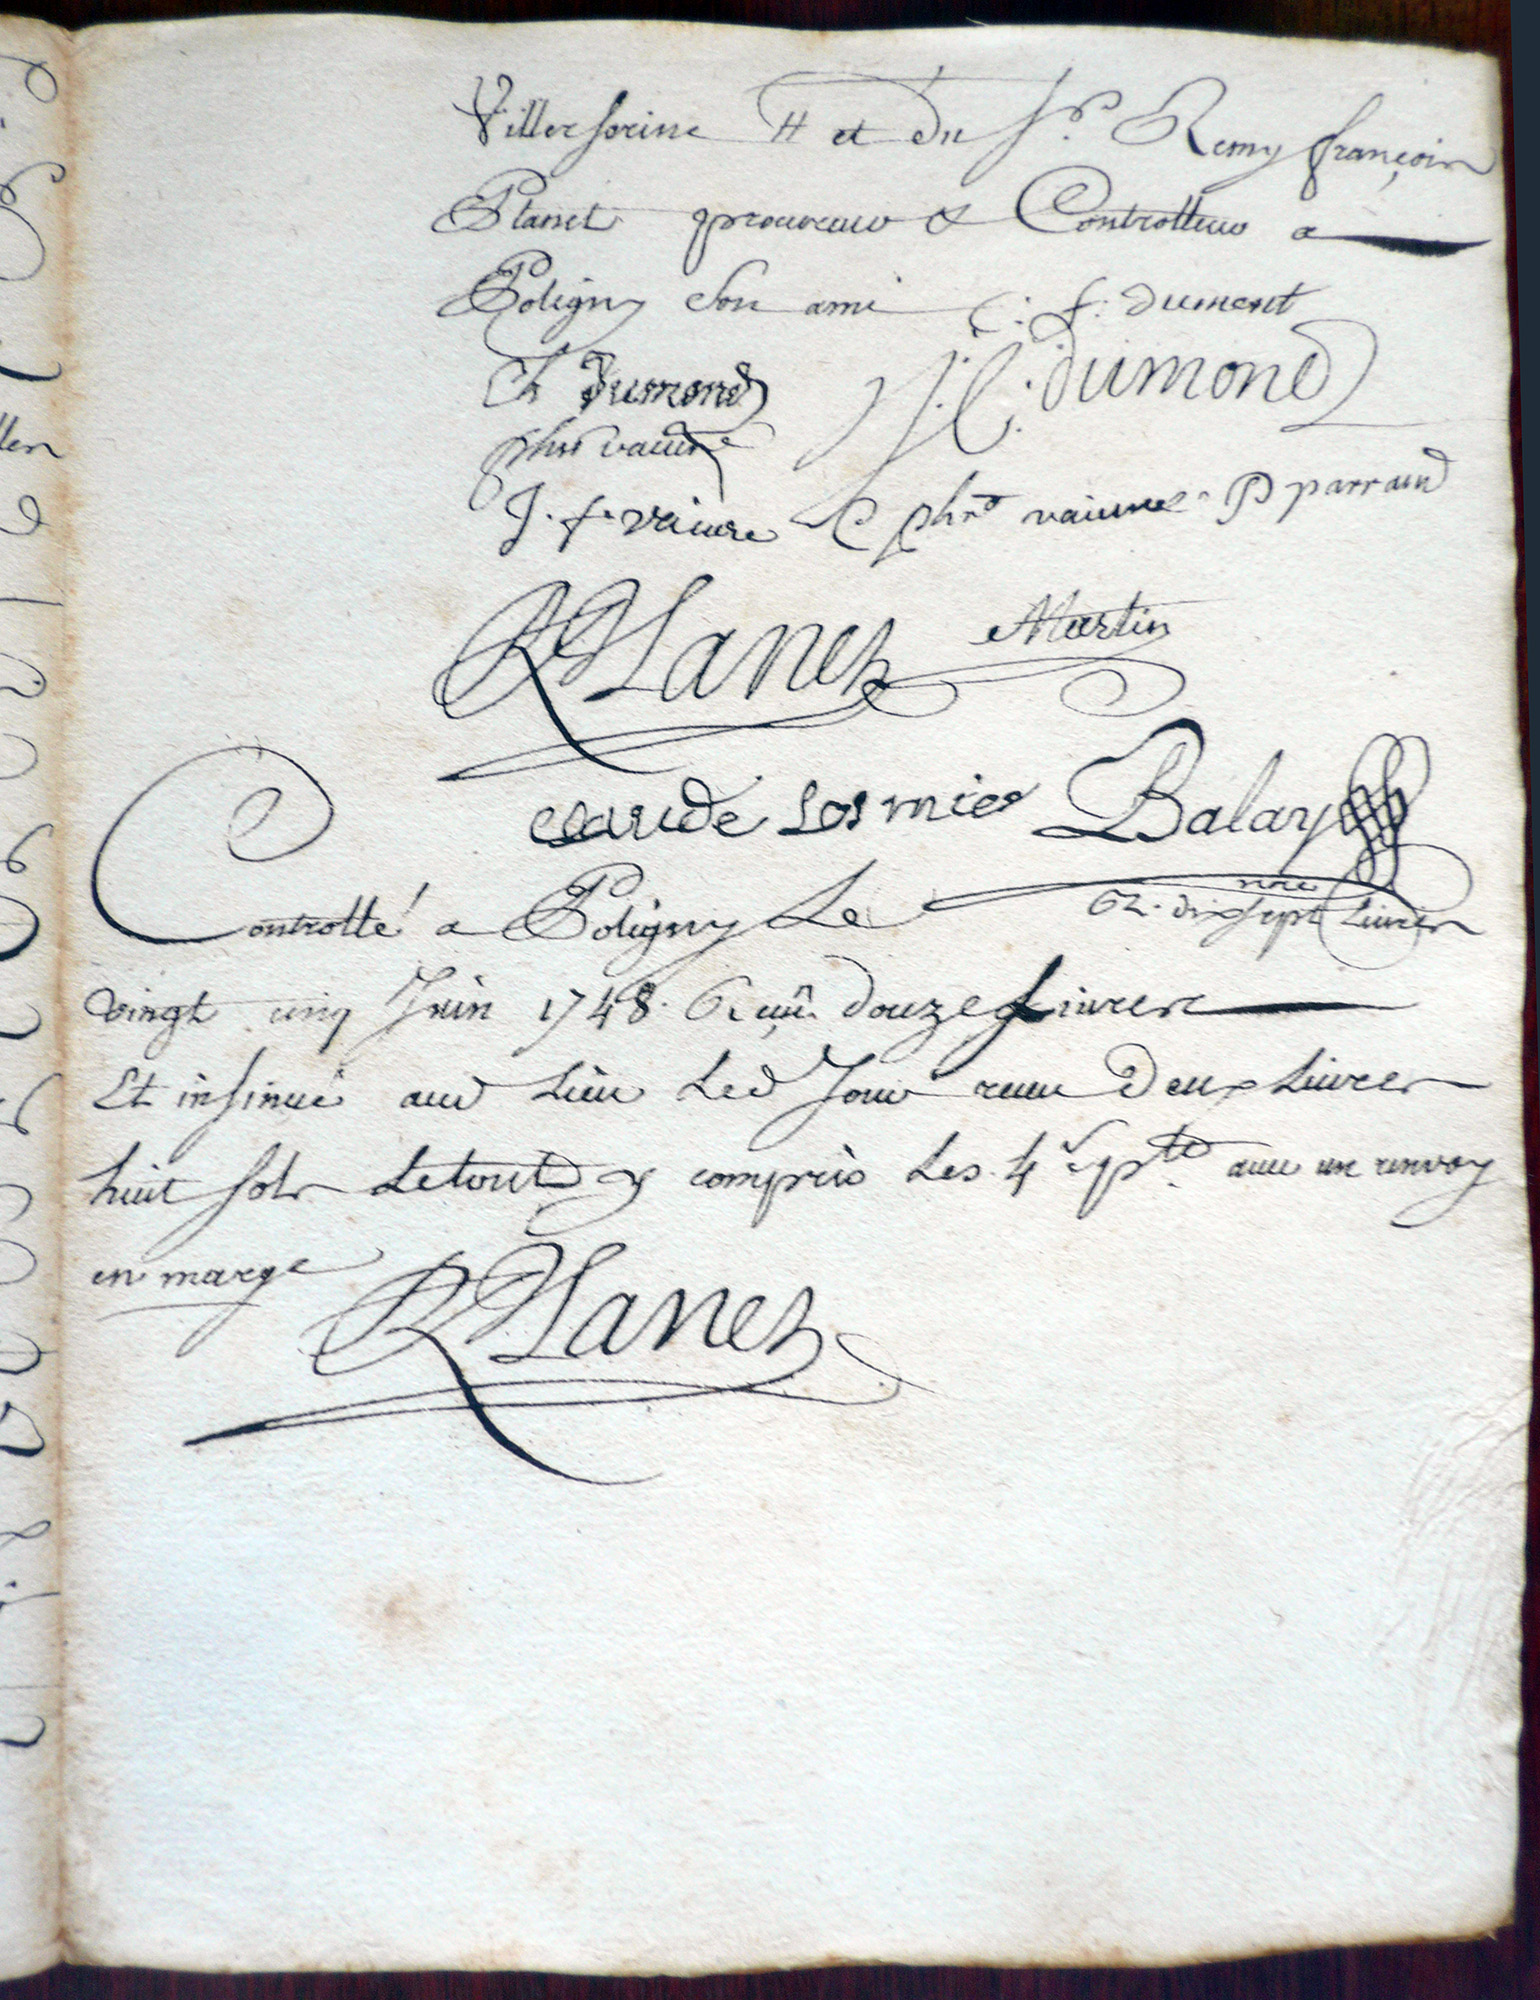 Villerserine # et du Sr. Remy françois
Planet procureur & Controlleur a
Poligny son ami C: f: dument
Ch Dumond J. C: Dumond
phr vaivre
J. f. vaivre C phre vaivre P parraud
RPlanet Martin
claude Cosmier Balay
nre
Controllé a Poligny Le R. dix sept Livres
vingt cinq Juin 1748. Reçu douze Livres
Et insinué aud Lieu Led Jour receu Deux Livres
huit sols Le tout y compris Les 4s. pr. avec un renvoy
en marge RPlanet